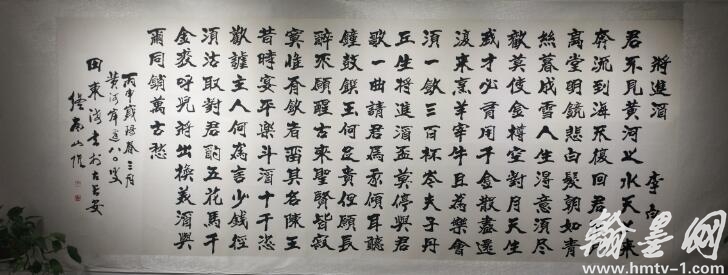 將進酒 李白
君不見黃河之水天上來
奔流到海不復回君不見
高堂明鏡悲白髮朝如青
絲暮成雪人生得意須盡
歡莫使金樽空對月天生
我才必有用千金散盡還
復來烹羊宰牛且為樂會
須一飲三百杯岑夫子丹
丘生將進酒盃莫停與君
歌一曲請君為我傾耳聽
鐘鼓饌玉何足貴但願長
醉不願醒古來聖賢皆寂
寞惟有飲者留其名陳王
昔時宴平樂斗酒十千恣
歡謔主人何為言少錢徑
須沽取對君酌五花馬千
金裘呼兒將出換美酒與
爾同銷萬古愁
丙申歲陽春三月
黃河岸邊八〇叟
田東海書於古長安
翰墨网
www.hmtv-1.com